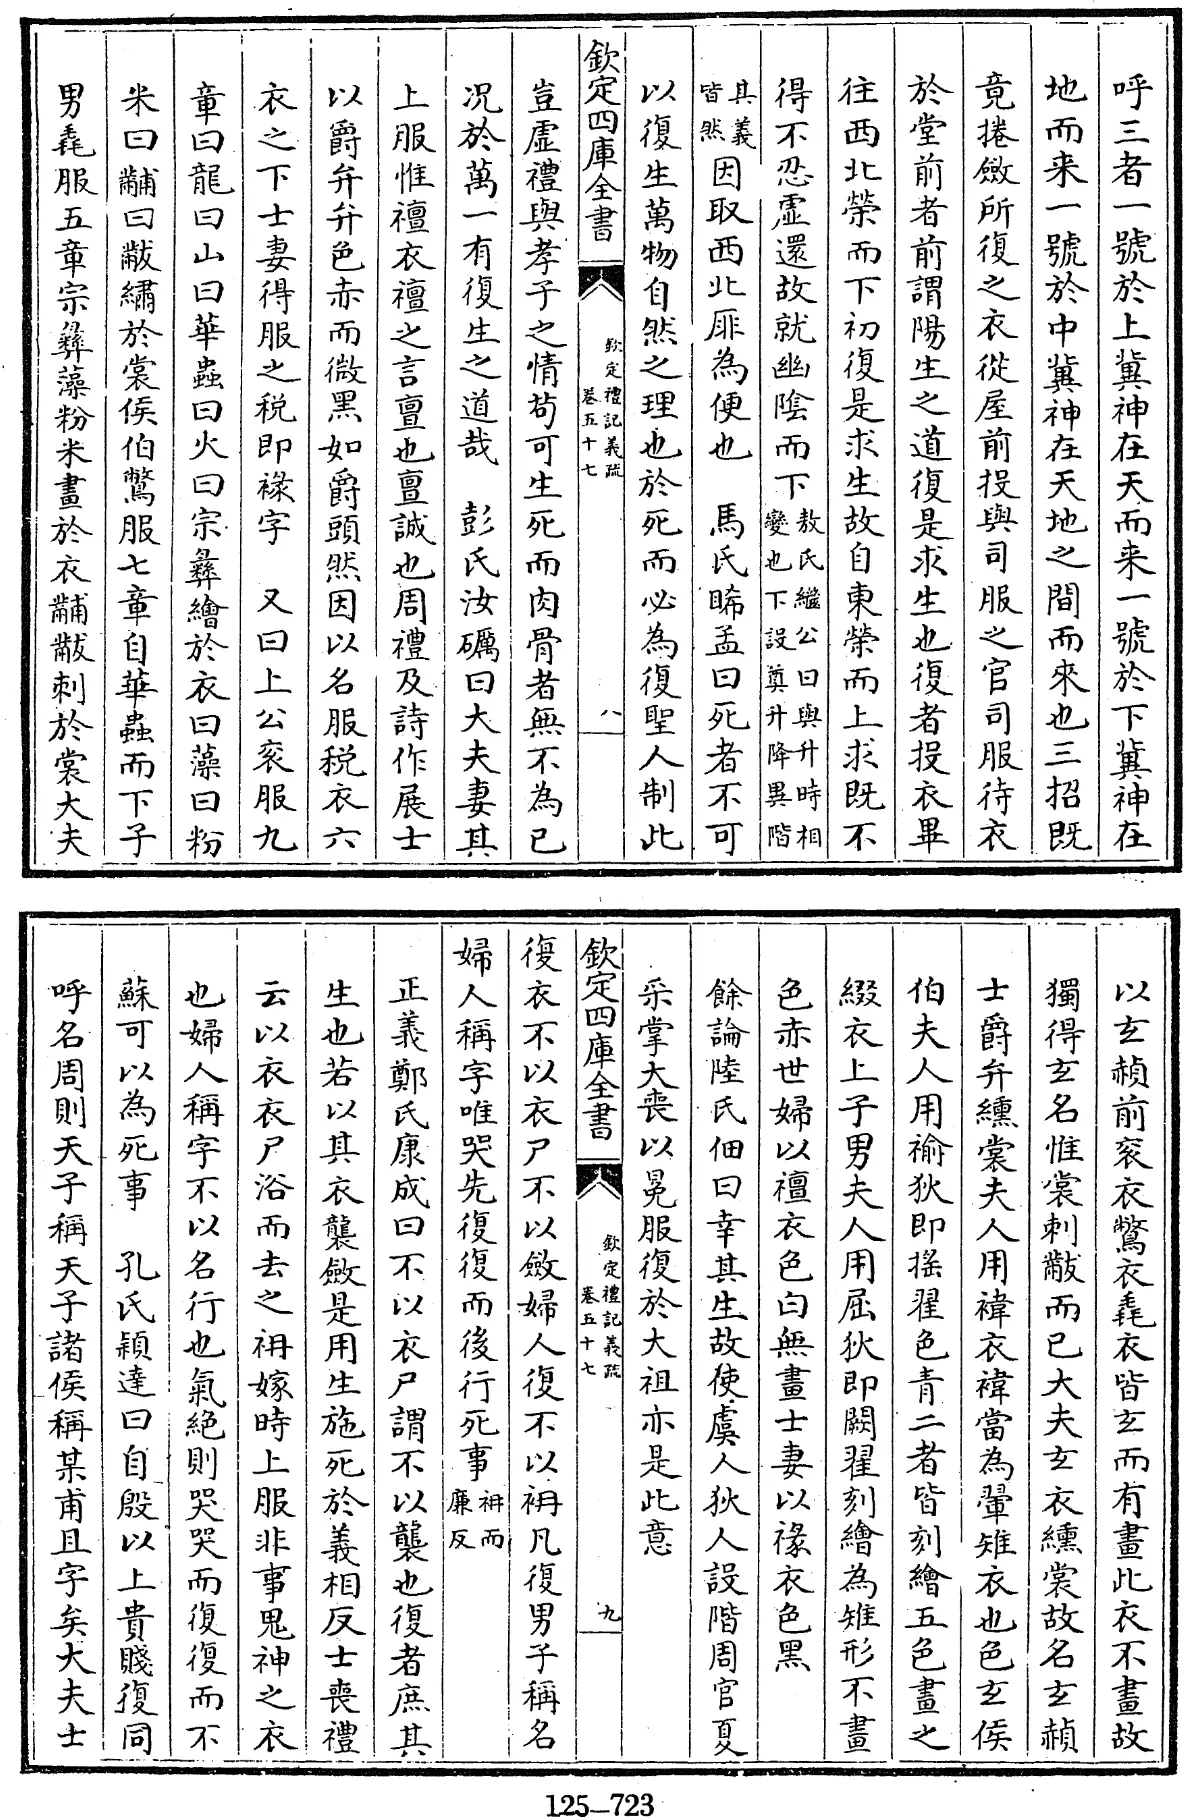 呼三者一號於上冀神在天而来一號於下冀神在
地而来一號於中冀神在天地之間而來也三招既
竟捲斂所復之衣從屋前投與司服之官司服待衣
於堂前者前謂陽生之道復是求生也復者投衣畢
往西北榮而下初復是求生故自東榮而上求既不
得不忍虛還故就幽陰而下敖氏繼公曰與升時相
變也下設奠升降異階
其義
皆然因取西北厞為便也　馬氏晞孟曰死者不可
以復生萬物自然之理也於死而必為復聖人制此
欽定四庫全書
欽定禮記義疏
卷五十七
八
豈虛禮與孝子之情苟可生死而肉骨者無不為已
况於萬一有復生之道哉　彭氏汝礪曰大夫妻其
上服惟襢衣襢之言亶也亶誠也周禮及詩作展士
以爵弁弁色赤而微黑如爵頭然因以名服税衣六
衣之下士妻得服之税即褖字　又曰上公衮服九
章曰龍曰山曰華蟲曰火曰宗彝繪於衣曰藻曰粉
米曰黼曰黻繡於裳侯伯鷩服七章自華蟲而下子
男毳服五章宗彝藻粉米畫於衣黼黻刺於裳大夫
以玄赬前衮衣鷩衣毳衣皆玄而有畫此衣不畫故
獨得玄名惟裳刺黻而已大夫玄衣纁裳故名玄赬
士爵弁纁裳夫人用褘衣褘當為翬雉衣也色玄侯
伯夫人用褕狄即搖翟色青二者皆刻繪五色畫之
綴衣上子男夫人用屈狄即闕翟刻繪為雉形不畫
色赤世婦以襢衣色白無畫士妻以褖衣色黑
餘論陸氏佃曰幸其生故使虞人狄人設階周官夏
采掌大喪以冕服復於大祖亦是此意
欽定四庫全書
欽定禮記義疏
卷五十七
九
復衣不以衣尸不以斂婦人復不以袡凡復男子稱名
婦人稱字唯哭先復復而後行死事袡而
廉反
正義鄭氏康成曰不以衣尸謂不以襲也復者庶其
生也若以其衣襲斂是用生施死於義相反士喪禮
云以衣衣尸浴而去之袡嫁時上服非事鬼神之衣
也婦人稱字不以名行也氣絶則哭哭而復復而不
蘇可以為死事　孔氏穎達曰自殷以上貴賤復同
呼名周則天子稱天子諸侯稱某甫且字矣大夫士
125–723